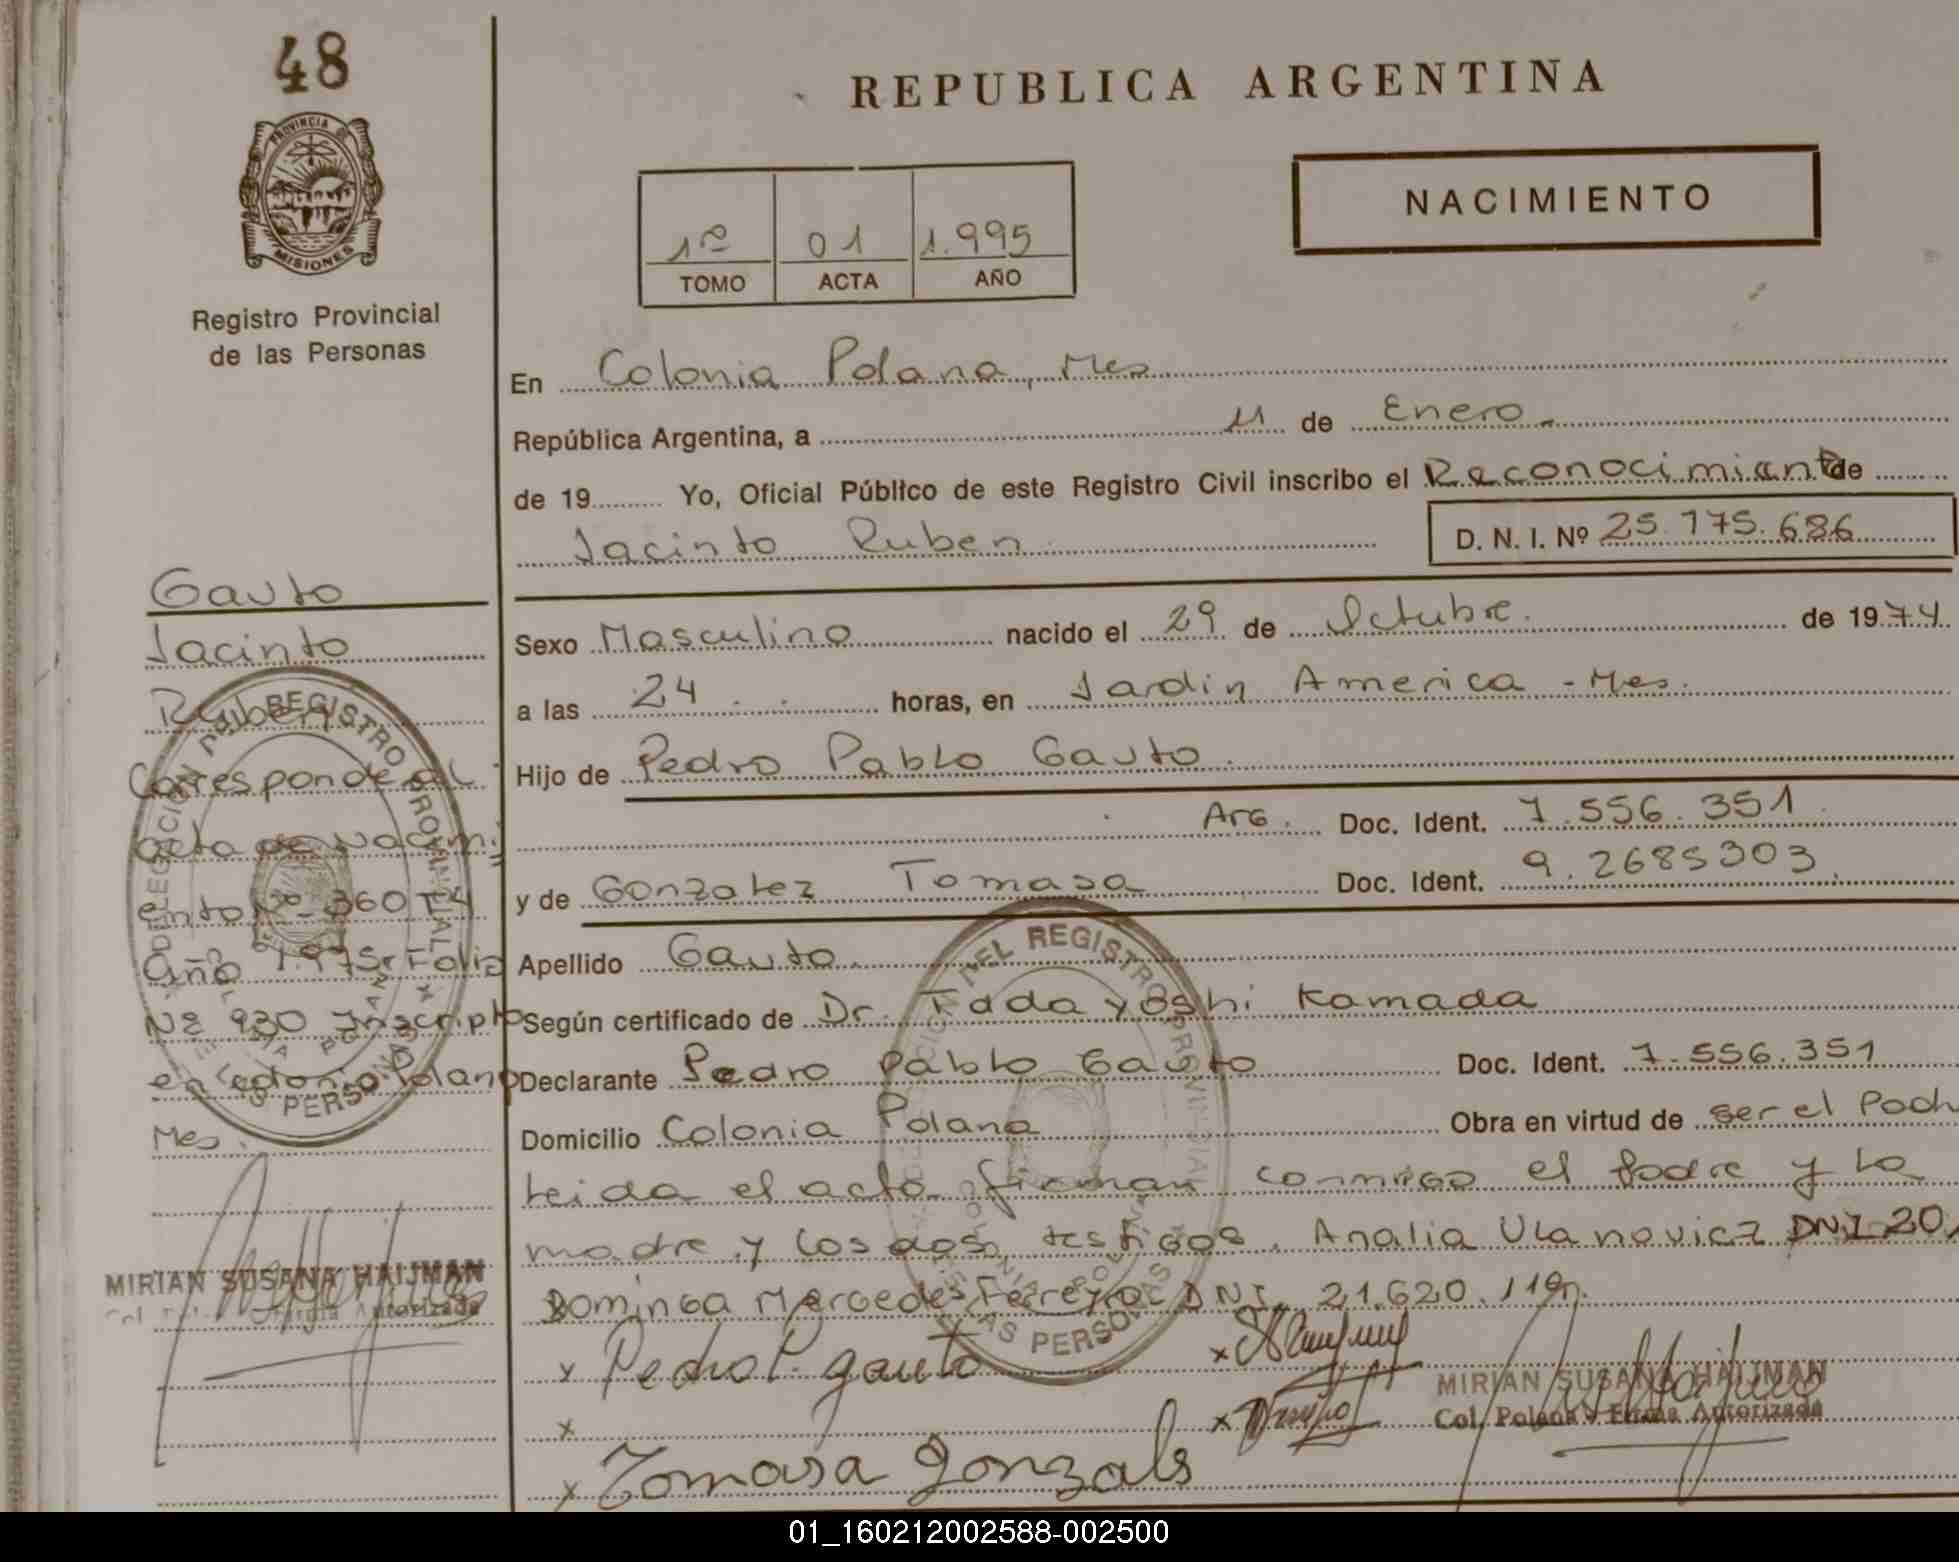 48
PROVINCIA DE
MISIONES
Registro Provincial
de las Personas
REPUBLICA ARGENTINA
NACIMIENTO
1º 01 1.995
TOMO ACTA AÑO
En Colonia Polana, Mes
República Argentina, a 11 de Enero
de 19 Yo, Oficial Público de este Registro Civil inscribo el Reconocimiento de
Jacinto Ruben D. N. I. Nº 25.175.686
Sexo Masculino nacido el 29 de Octubre. de 1974
a las 24 horas, en Jardin America - Mes.
Hijo de Pedro Pablo Gauto
Arg. Doc. Ident. 7.556.351
y de Gonzalez Tomasa Doc. Ident. 9.2685303
Apellido Gauto
Según certificado de Dr. Tadayoshi Kamada
Declarante Pedro Pablo Gauto Doc. Ident. 7.556.351
Domicilio Colonia Polana Obra en virtud de ser el Padr
Leida el acta firman conmigo el Padre y La
madre y Los dos testigos. Analia Ulanovicz DNI 20.
Dominga Mercedes Ferreyra DNI. 21.620.119
x Pedro P. gauto x
x x
x Tomasa gonzals
MIRIAN SUSANA HAIJMAN
Col. Polana - Firma Autorizada
Gauto
Jacinto
Ruben
Corresponde al
acta de Nacimi
ento Nº 360 T4
año 1.975 Folio
Nº 930 Inscripto
en colonia Polana
Mes.
MIRIAN SUSANA HAIJMAN
Firma Autorizada
DELEGACION DEL REGISTRO PROVINCIAL
DE LAS PERSONAS
COLONIA POLANA
DEL REGISTRO PROVINCIAL
DE LAS PERSONAS
COLONIA POLANA
01_160212002588-002500